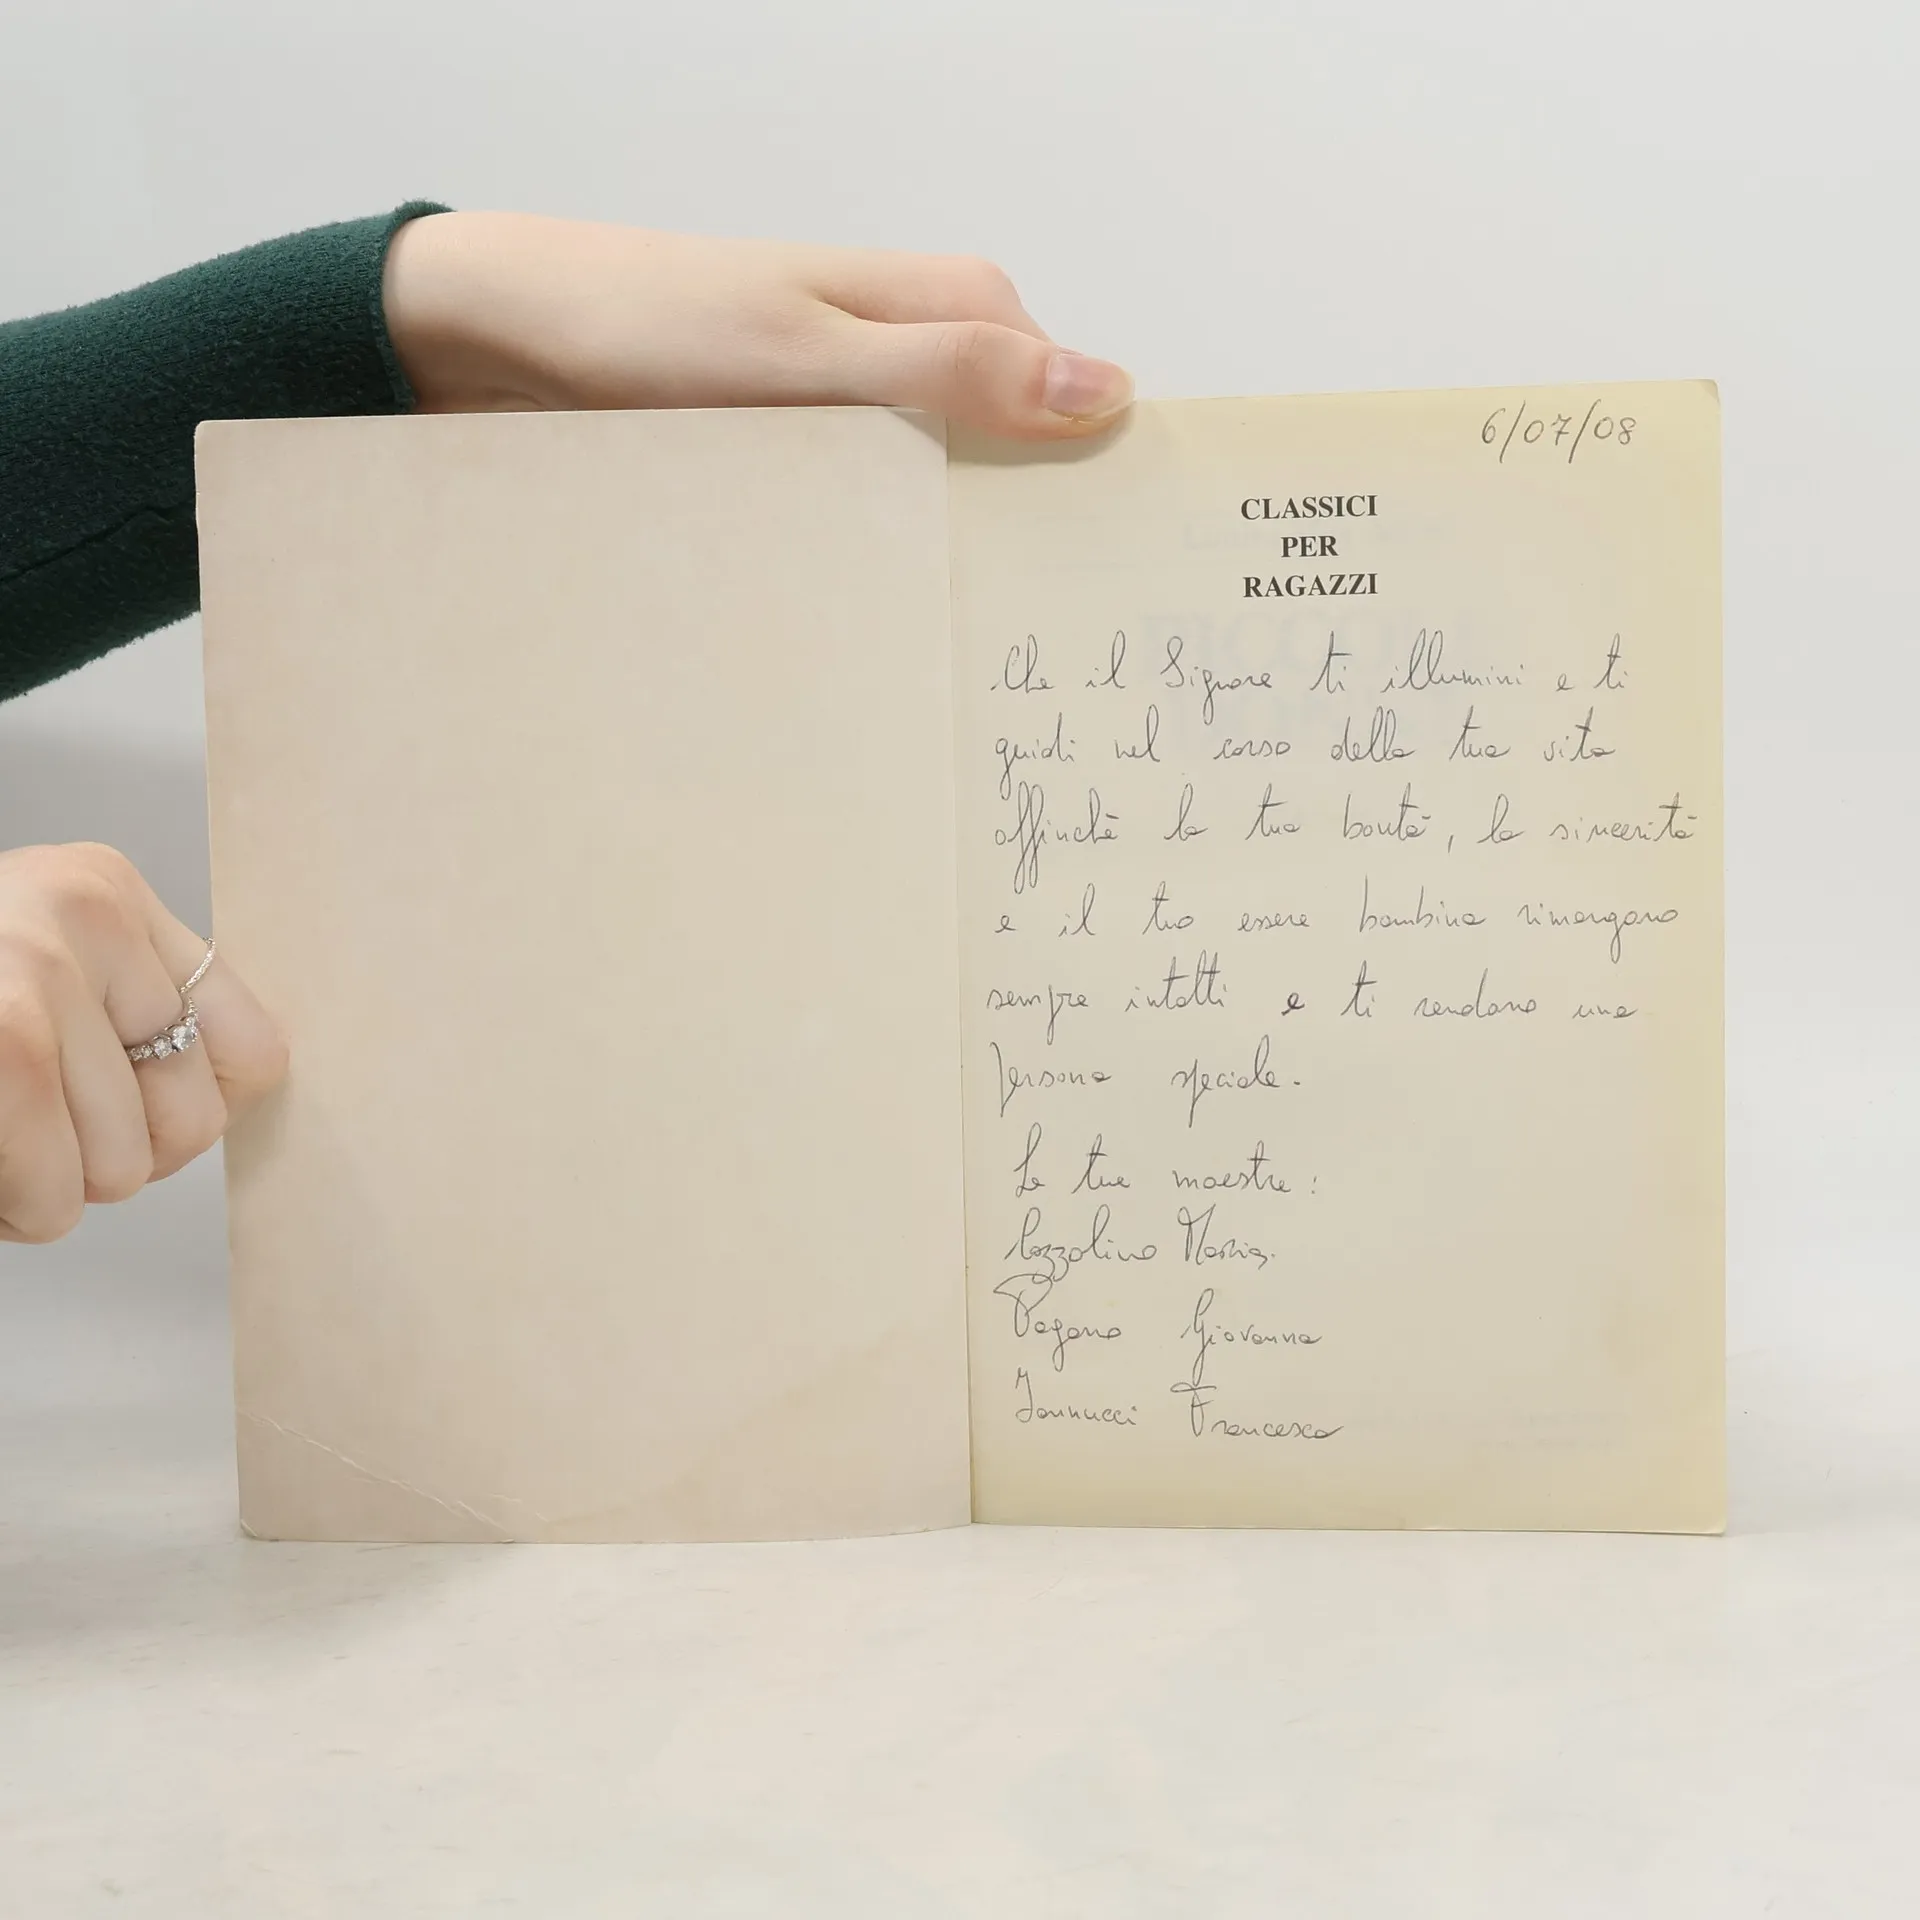 6/07/08
CLASSICI
PER
RAGAZZI
Che il Signore ti illumini e ti
guidi nel corso della tua vita
affinchè la tua bontà, la sincerità
e il tuo essere bambina rimangano
sempre intatti e ti rendano una
persona speciale.
Le tue maestre:
Cozzolino Maria.
Pagano Giovanna
Iannucci Francesca